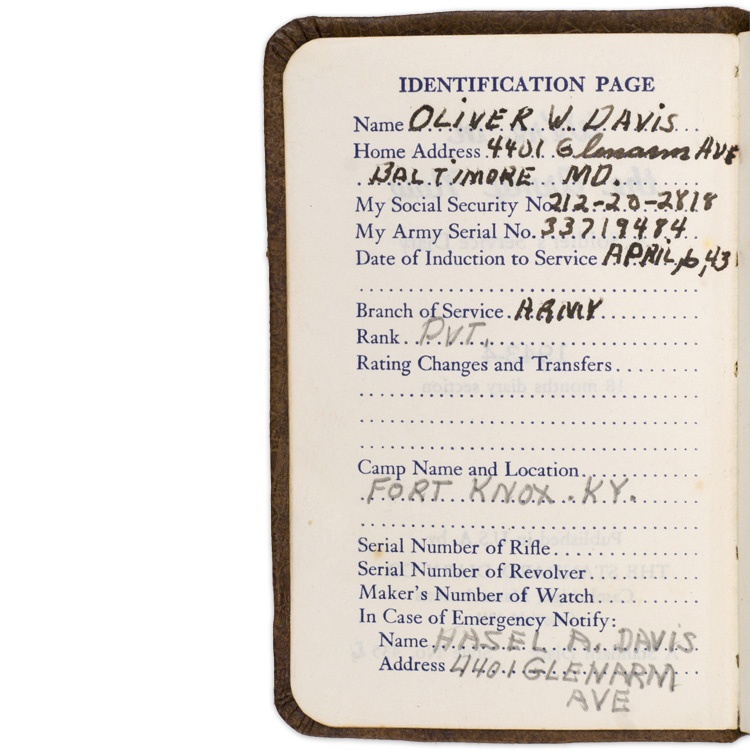 IDENTIFICATION PAGE
Name OLIVER W. DAVIS
Home Address 4401 Glenarm AVE
BALTIMORE MD
My Social Security No. 212-20-2818
My Army Serial No. 33719484
Date of Induction to Service APRIL, 43
Branch of Service ARMY
Rank PVT.
Rating Changes and Transfers
Camp Name and Location
FORT KNOX. KY.
Serial Number of Rifle
Serial Number of Revolver
Maker's Number of Watch
In Case of Emergency Notify:
Name HASEL A. DAVIS
Address 4401 GLENARM
AVE